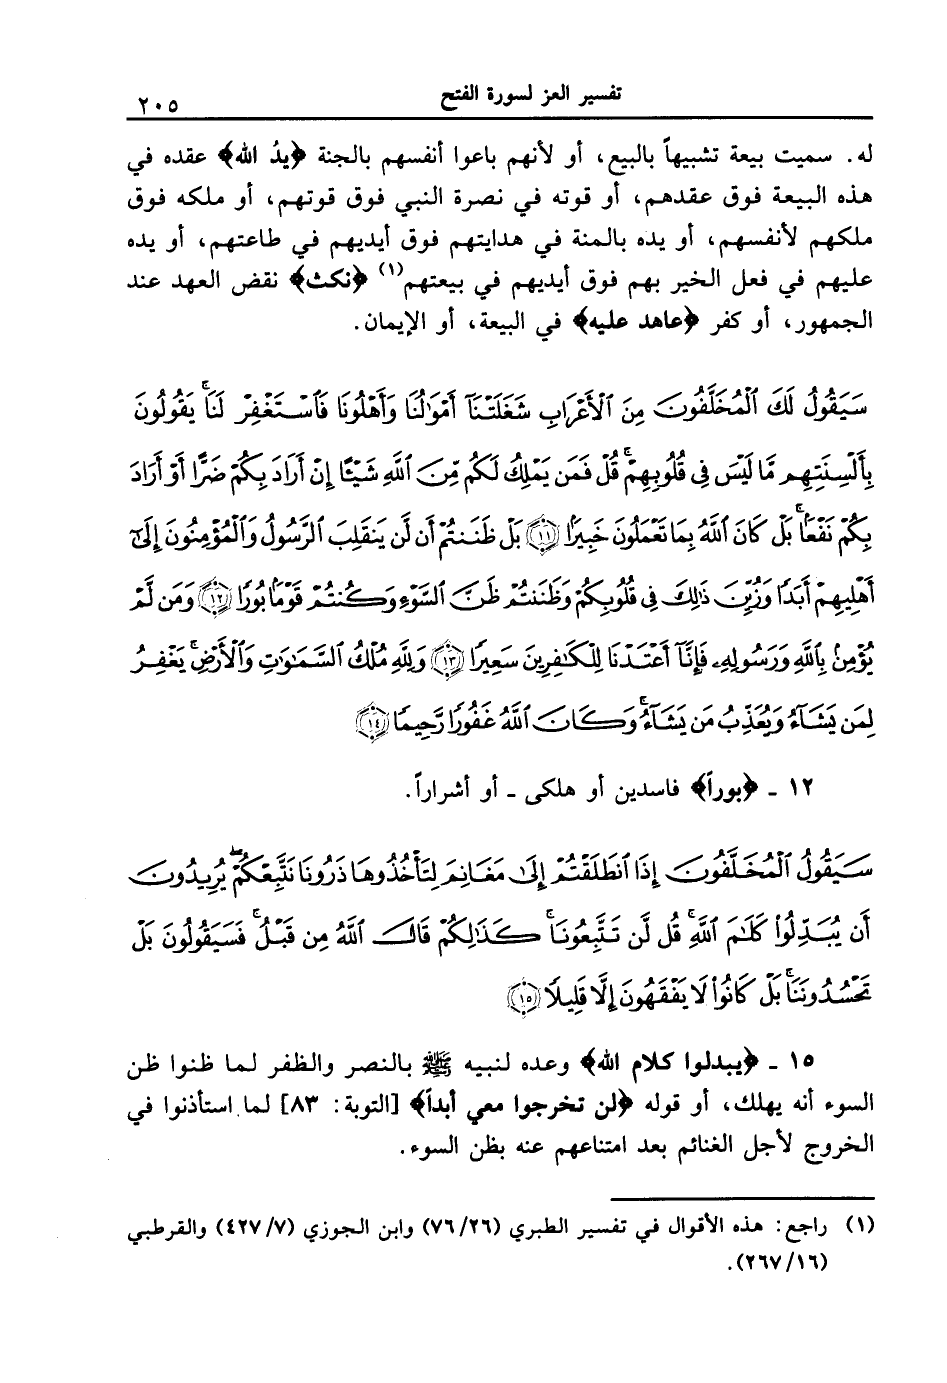 تفسير العز لسورة الفتح
٢٠٥
له. سميت بيعة تشبيهاً بالبيع، أو لأنهم باعوا أنفسهم بالجنة ﴿يدُ الله﴾ عقده في
هذه البيعة فوق عقدهم، أو قوته في نصرة النبي فوق قوتهم، أو ملكه فوق
ملكهم لأنفسهم، أو يده بالمنة في هدايتهم فوق أيديهم في طاعتهم، أو يده
عليهم في فعل الخير بهم فوق أيديهم في بيعتهم(١) ﴿نكث﴾ نقض العهد عند
الجمهور، أو كفر ﴿عاهد عليه﴾ في البيعة، أو الإيمان.
سَيَقُولُ لَكَ ٱلْمُخَلَّفُونَ مِنَ ٱلْأَعْرَابِ شَغَلَتْنَآ أَمْوَٰلُنَا وَأَهْلُونَا فَٱسْتَغْفِرْ لَنَا ۚ يَقُولُونَ
بِأَلْسِنَتِهِم مَّا لَيْسَ فِى قُلُوبِهِمْ ۚ قُلْ فَمَن يَمْلِكُ لَكُم مِّنَ ٱللَّهِ شَيْـًٔا إِنْ أَرَادَ بِكُمْ ضَرًّا أَوْ أَرَادَ
بِكُمْ نَفْعًۢا ۚ بَلْ كَانَ ٱللَّهُ بِمَا تَعْمَلُونَ خَبِيرًۢا ﴿١١﴾ بَلْ ظَنَنتُمْ أَن لَّن يَنقَلِبَ ٱلرَّسُولُ وَٱلْمُؤْمِنُونَ إِلَىٰٓ
أَهْلِيهِمْ أَبَدًا وَزُيِّنَ ذَٰلِكَ فِى قُلُوبِكُمْ وَظَنَنتُمْ ظَنَّ ٱلسَّوْءِ وَكُنتُمْ قَوْمًۢا بُورًا ﴿١٢﴾ وَمَن لَّمْ
يُؤْمِنۢ بِٱللَّهِ وَرَسُولِهِۦ فَإِنَّآ أَعْتَدْنَا لِلْكَٰفِرِينَ سَعِيرًا ﴿١٣﴾ وَلِلَّهِ مُلْكُ ٱلسَّمَٰوَٰتِ وَٱلْأَرْضِ ۚ يَغْفِرُ
لِمَن يَشَآءُ وَيُعَذِّبُ مَن يَشَآءُ ۚ وَكَانَ ٱللَّهُ غَفُورًا رَّحِيمًا ﴿١٤﴾
١٢ ـ ﴿بوراً﴾ فاسدين أو هلكى ـ أو أشراراً.
سَيَقُولُ ٱلْمُخَلَّفُونَ إِذَا ٱنطَلَقْتُمْ إِلَىٰ مَغَانِمَ لِتَأْخُذُوهَا ذَرُونَا نَتَّبِعْكُمْ ۖ يُرِيدُونَ
أَن يُبَدِّلُوا۟ كَلَٰمَ ٱللَّهِ ۚ قُل لَّن تَتَّبِعُونَا ۚ كَذَٰلِكُمْ قَالَ ٱللَّهُ مِن قَبْلُ ۚ فَسَيَقُولُونَ بَلْ
تَحْسُدُونَنَا ۚ بَلْ كَانُوا۟ لَا يَفْقَهُونَ إِلَّا قَلِيلًا ﴿١٥﴾
١٥ ـ ﴿يبدلوا كلام الله﴾ وعده لنبيه ﷺ بالنصر والظفر لما ظنوا ظن
السوء أنه يهلك، أو قوله ﴿لن تخرجوا معي أبداً﴾ [التوبة: ٨٣] لما استأذنوا في
الخروج لأجل الغنائم بعد امتناعهم عنه بظن السوء.
(١) راجع: هذه الأقوال في تفسير الطبري (٧٦/٢٦) وابن الجوزي (٤٢٧/٧) والقرطبي
(٢٦٧/١٦).